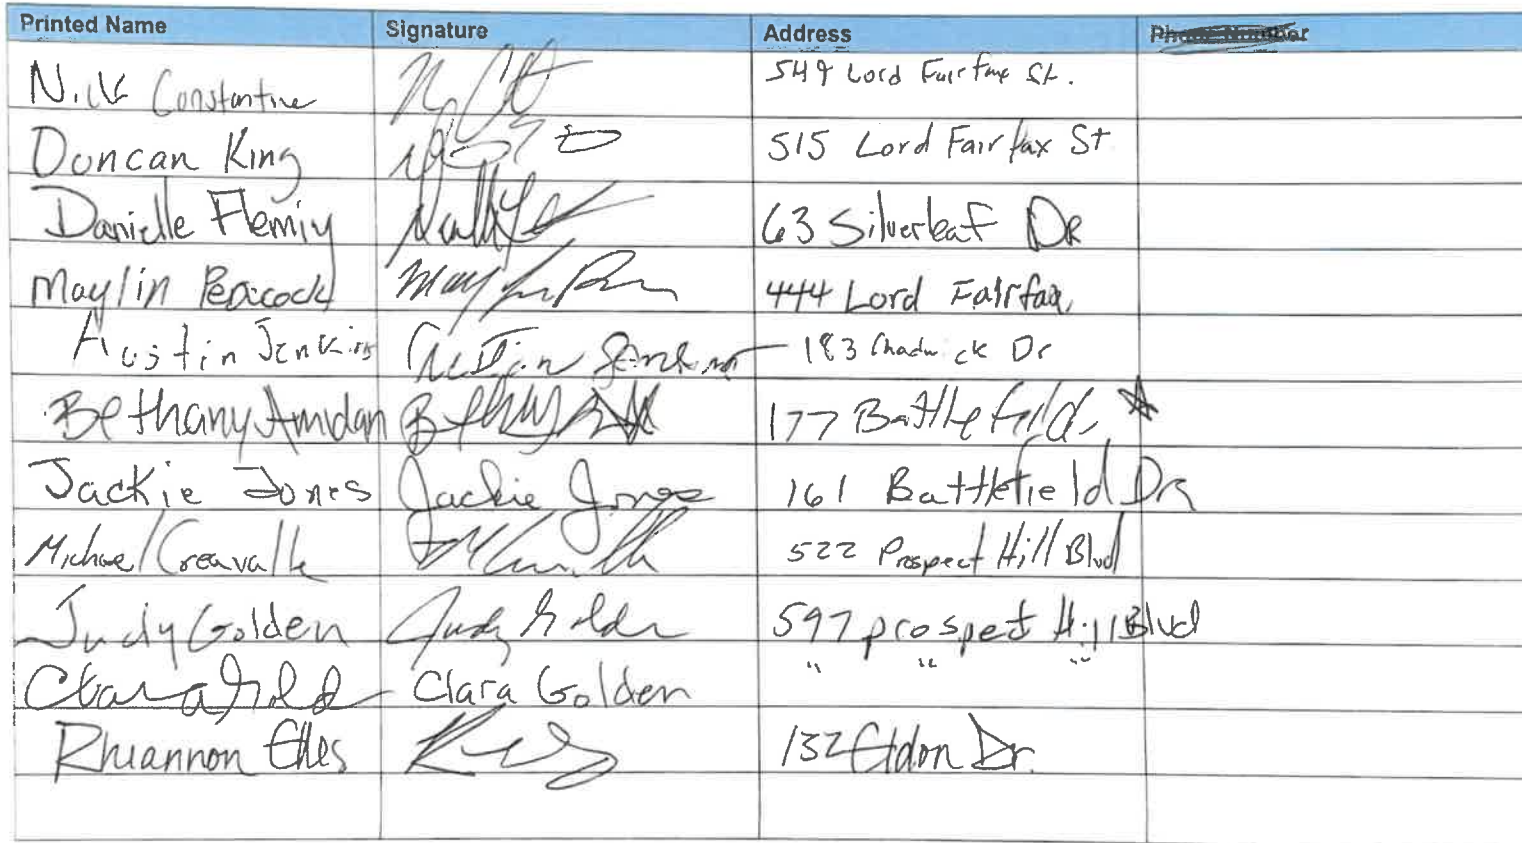 Printed Name Signature Address Phone Number
Nick Constantine 549 Lord Fairfax St.
Duncan King 515 Lord Fairfax St
Danielle Fleming 63 Silverleaf DR
Maylin Peacock 444 Lord Fairfax
Austin Jenkins Austin Jenkins 183 Chadwick Dr
Bethany Amidan 177 Battlefield
Jackie Jones Jackie Jones 161 Battlefield Dr
Michael Creavalle 522 Prospect Hill Blvd
Judy Golden Judy Golden 597 prospect Hill Blvd
Clara Gold Clara Golden " " "
Rhiannon 132 Eldon Dr.